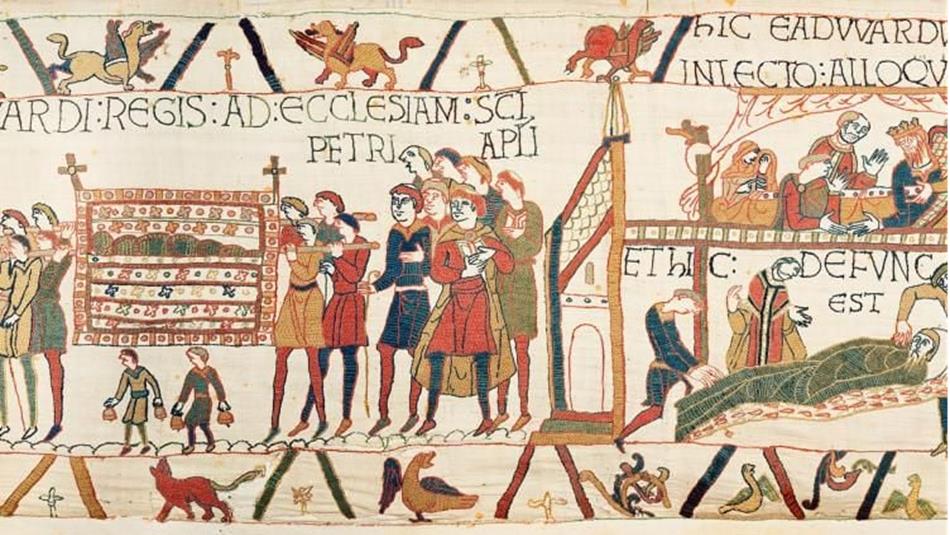 ARDI:REGIS:AD:ECCLESIAM:SCI
PETRI APLI
hIC EADVVARDV
INLECTO:ALLOQV
EThIC:DEFVNC
EST